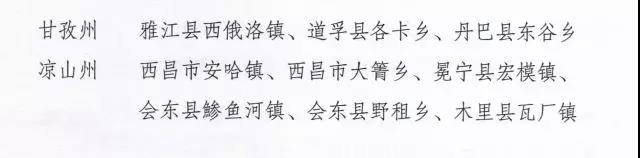 甘孜州 雅江县西俄洛镇、道孚县各卡乡、丹巴县东谷乡
凉山州 西昌市安哈镇、西昌市大箐乡、冕宁县宏模镇、
会东县鲹鱼河镇、会东县野租乡、木里县瓦厂镇